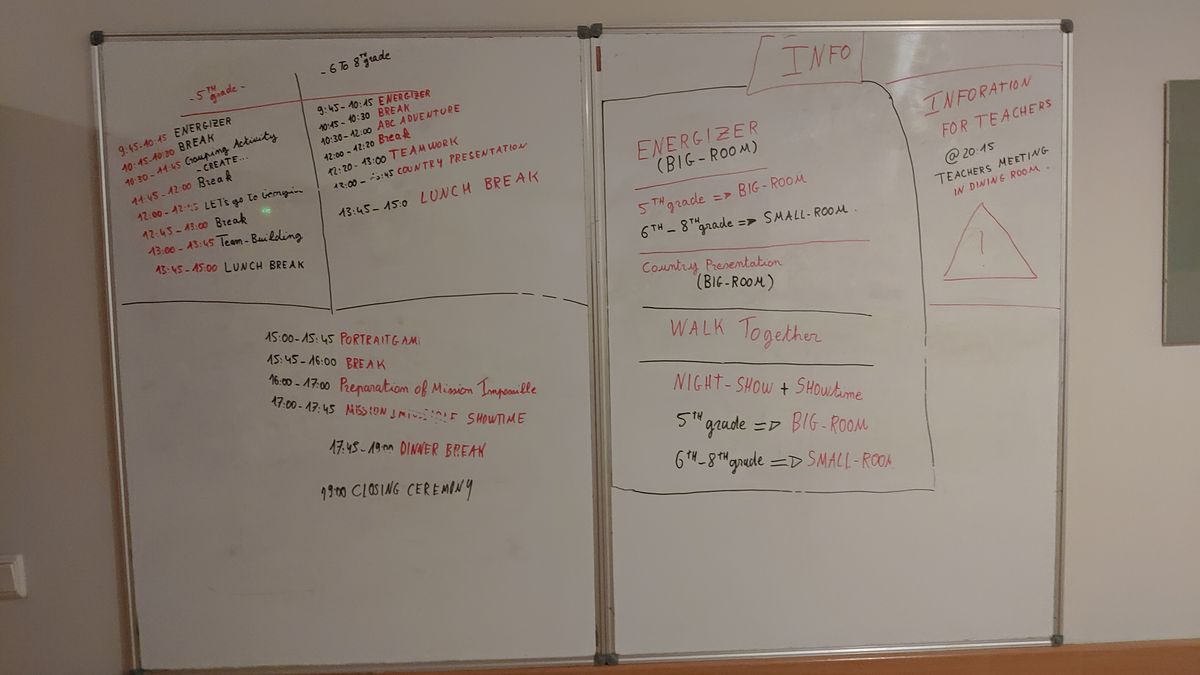 - 5TH grade -
9:45-10:15 ENERGIZER
10:15-10:30 BREAK
10:30-11:45 Gouping Activity
-CREATE...
11:45-12:00 Break
12:00- LET's go to
12:45-13:00 Break
13:00-13:45 Team-Building
13:45-15:00 LUNCH BREAK
- 6 To 8th grade
9:45-10:15 ENERGIZER
10:15-10:30 BREAK
10:30-12:00 ABC ADVENTURE
12:00-12:20 Break
12:20-13:00 TEAMWORK
COUNTRY PRESENTATION
13:45- LUNCH BREAK
15:00-15:45 PORTRAITGAM
15:45-16:00 BREAK
16:00-17:00 Preparation of Mission Impossible
17:00-17:45 MISSION SHOWTIME
17:45- DINNER BREAK
19:00 CLOSING CEREMONY
INFO
ENERGIZER
(BIG-ROOM)
5TH grade => BIG-ROOM
6TH-8TH grade => SMALL-ROOM.
Country Presentation
(BIG-ROOM)
WALK Together
NIGHT-SHOW + SHOWtime
5TH grade => BIG-ROOM
6TH-8TH grade => SMALL-ROOM
INFORATION
FOR TEACHERS
@ 20:15
TEACHERS MEETING
IN DINING ROOM.
!